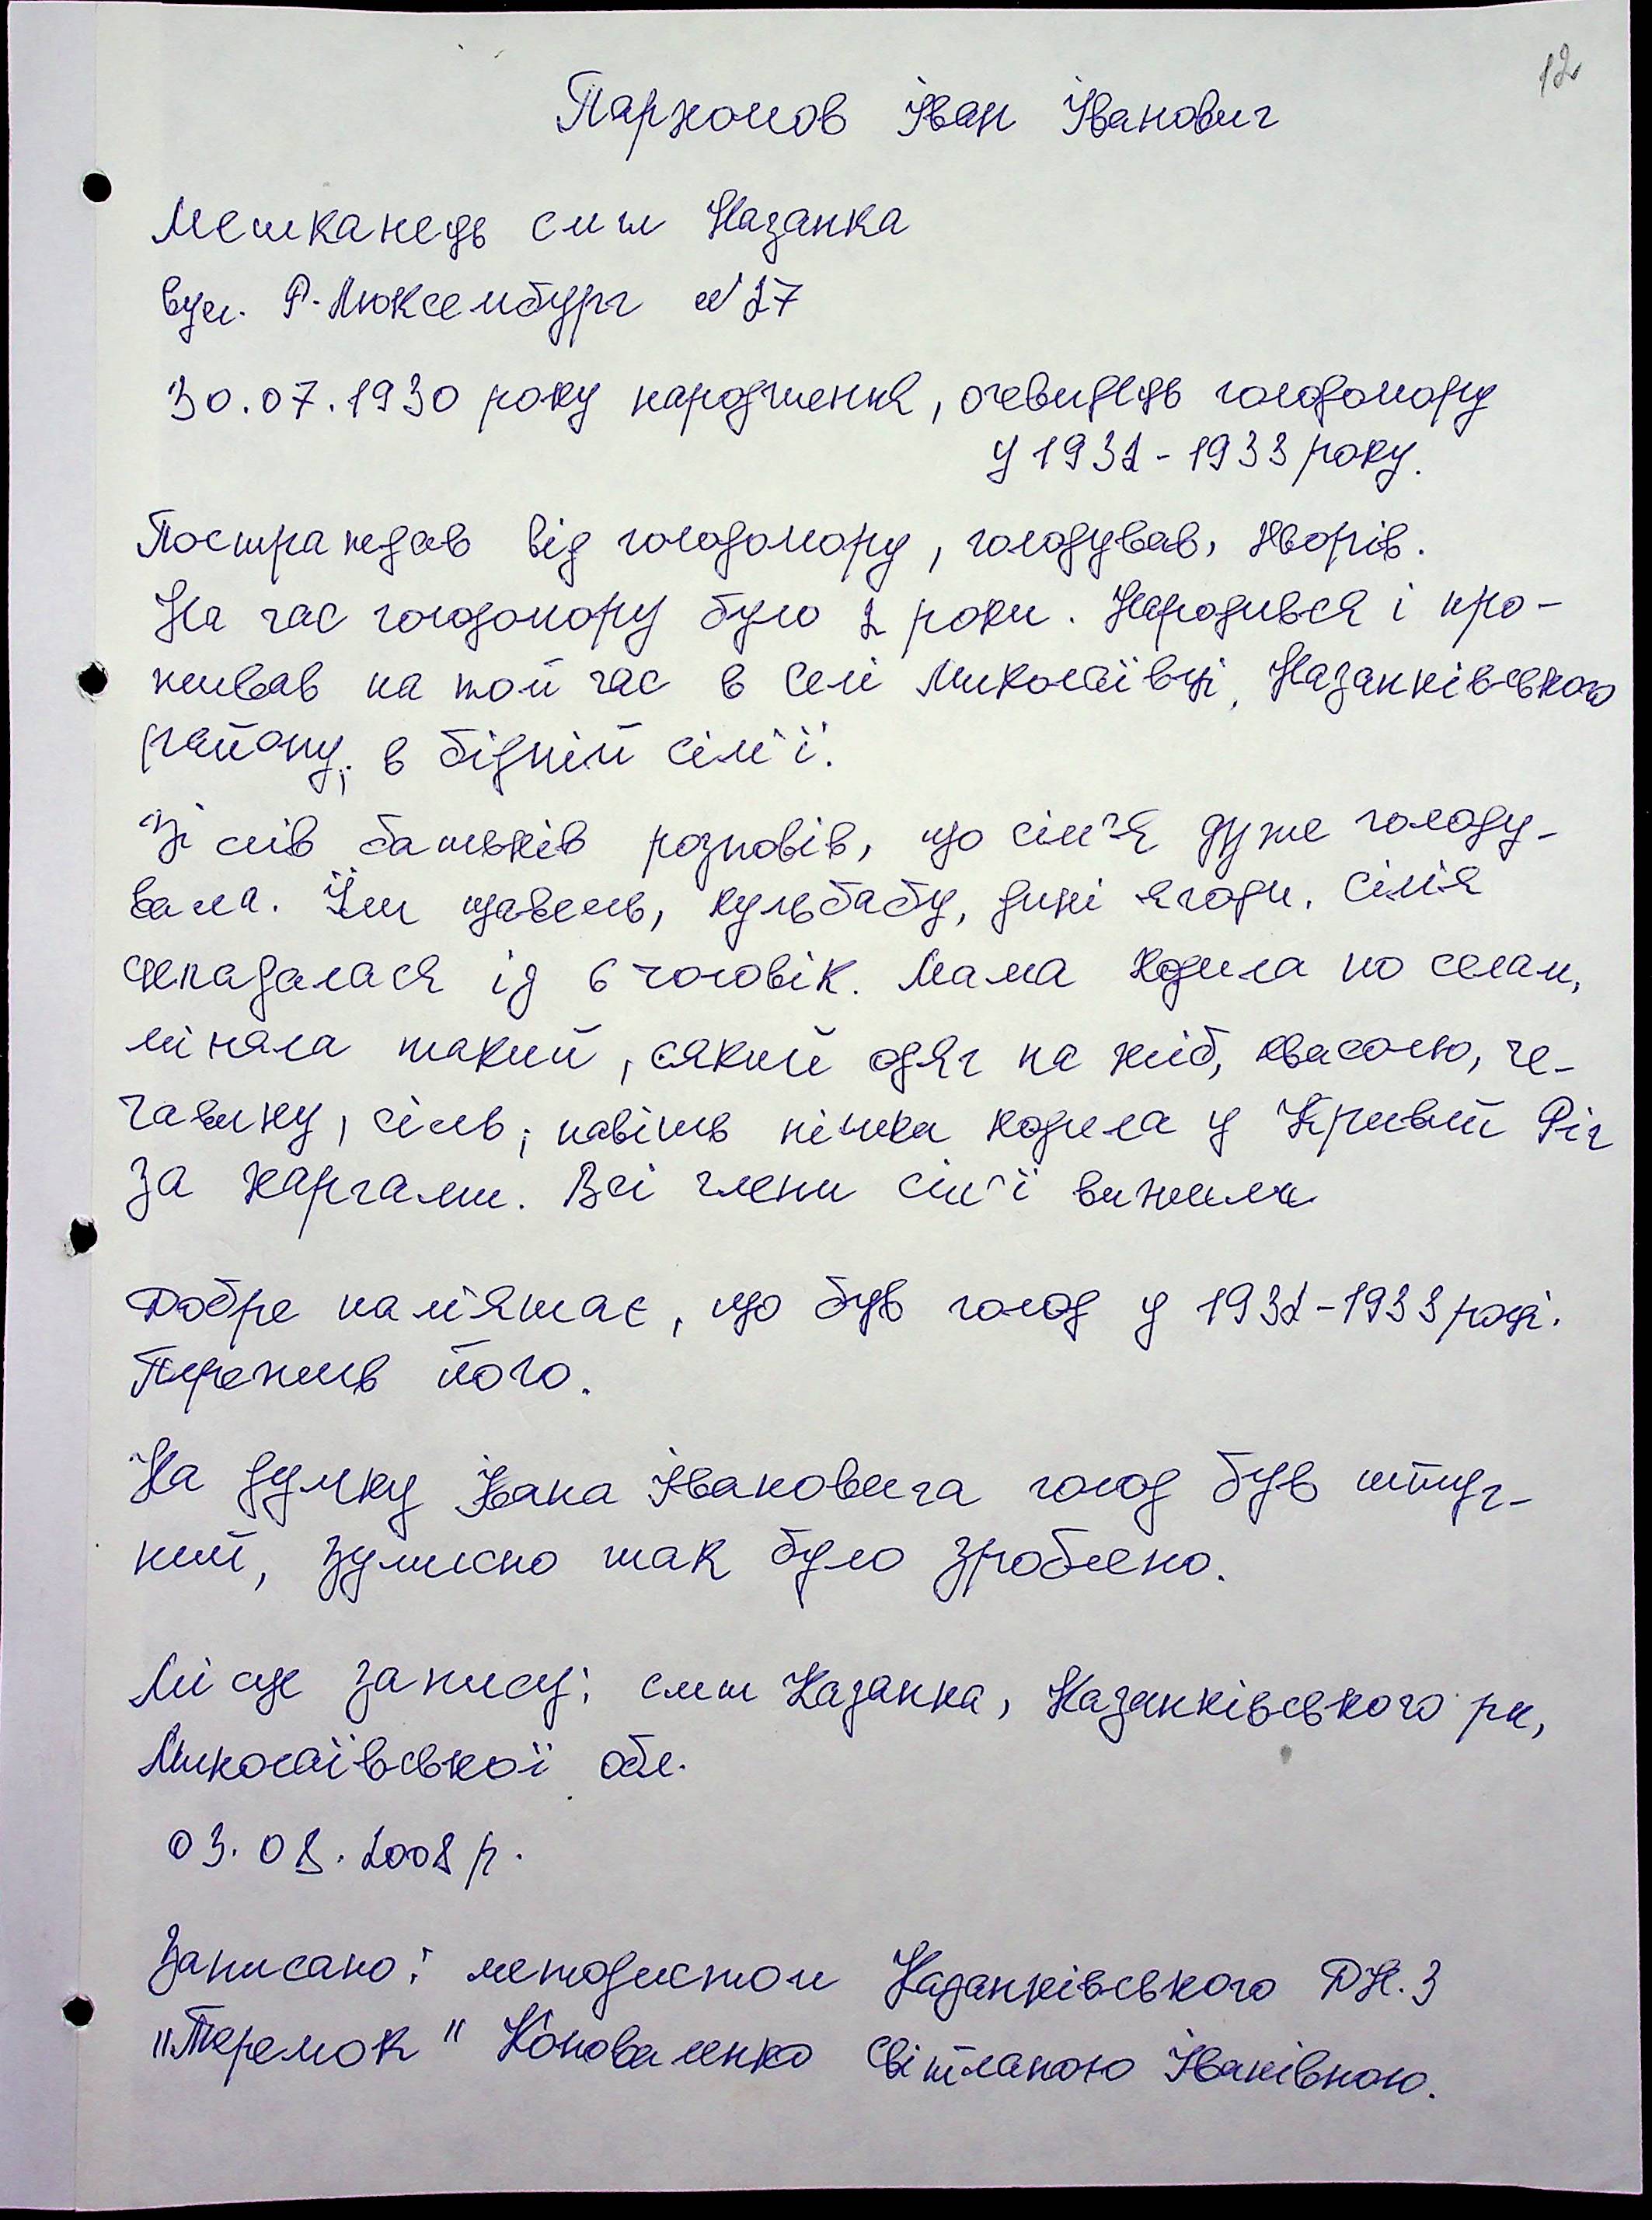 12
Пархомов Іван Іванович
Мешканець смт Казанка
вул. Р. Люксембург №27
30.07.1930 року народження, очевидець голодомору
у 1932-1933 року.
Постраждав від голодомору, голодував, хворів.
На час голодомору було 2 роки. Народився і про-
живав на той час в селі Миколаївці, Казанківського
району, в бідній сім'ї.
Зі слів батьків розповів, що сім'я дуже голоду-
вала. Їли щавель, кульбабу, дикі ягоди. Сім'я
складалася із 6 чоловік. Мама ходила по селам,
міняла такий, сякий одяг на хліб, квасолю, че-
чавицу, сіль, навіть пішки ходила у Кривий Ріг
за харчами. Всі члени сім'ї вижили
Добре пам'ятає, що був голод у 1932-1933 році.
Пережив його.
На думку Івана Івановича голод був штуч-
ний, зумисно так було зроблено.
Місце запису: смт Казанка, Казанківського рн,
Миколаївської обл.
03.08.2008 р.
Записано: методистом Казанківського ДН.З
"Теремок" Коноваленко Світланою Іванівною.